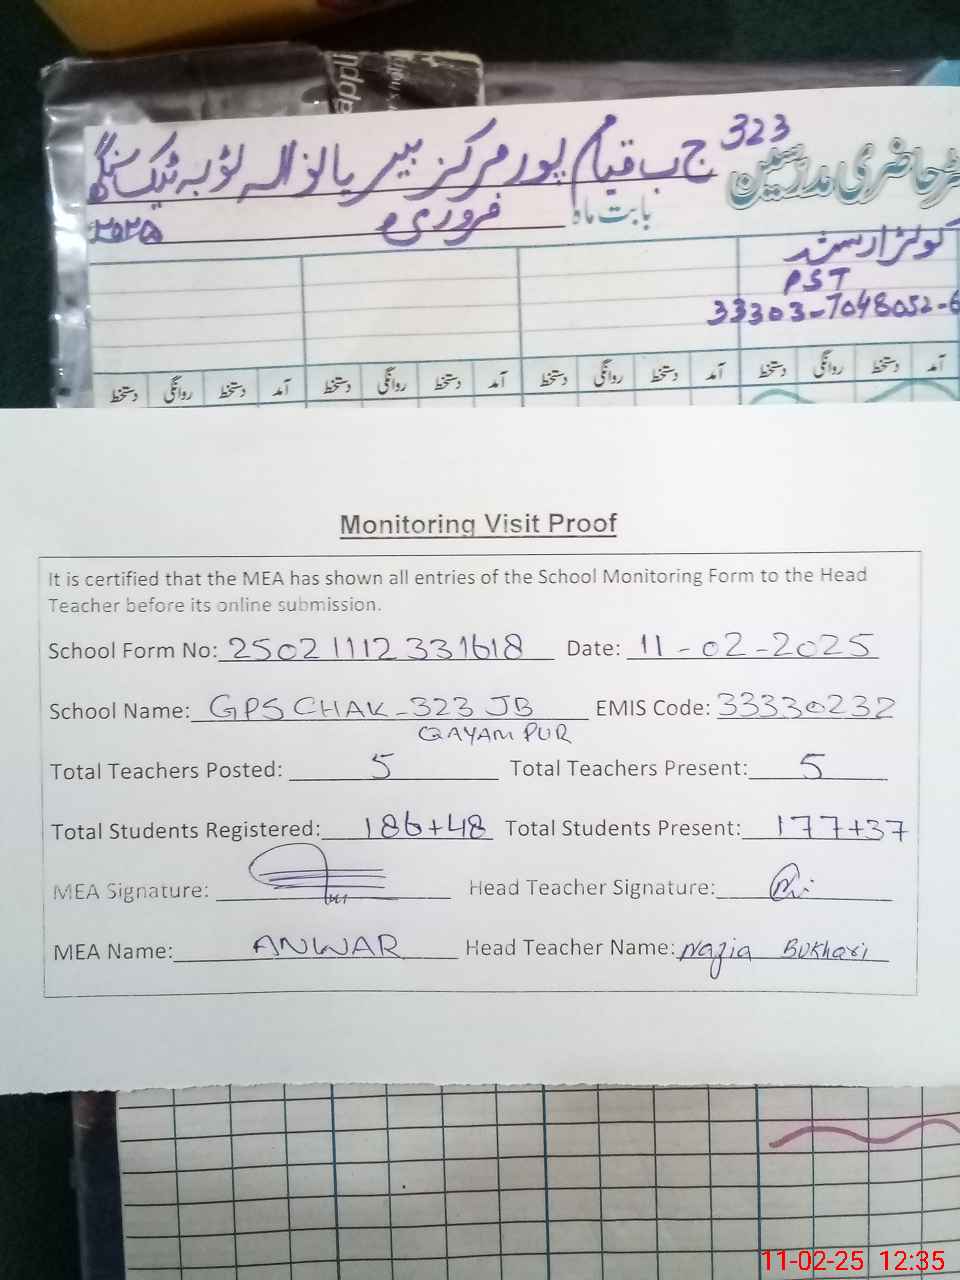 323 ج ب قیام پور مرکز بیریانوالہ ٹوبہ ٹیک سنگھ
حاضری مدرسین
بابت ماہ فروری ۲۰۲۵
PST
33303-7048052-6
آمد دستخط روانگی دستخط آمد دستخط روانگی دستخط آمد دستخط روانگی دستخط آمد دستخط روانگی دستخط
Monitoring Visit Proof
It is certified that the MEA has shown all entries of the School Monitoring Form to the Head
Teacher before its online submission.
School Form No: 25021112331618 Date: 11-02-2025
School Name: GPS CHAK-323 JB EMIS Code: 33330232
QAYAM PUR
Total Teachers Posted: 5 Total Teachers Present: 5
Total Students Registered: 186+48 Total Students Present: 177+37
MEA Signature: Head Teacher Signature:
MEA Name: ANWAR Head Teacher Name: Nazia Bukhari
11-02-25 12:35